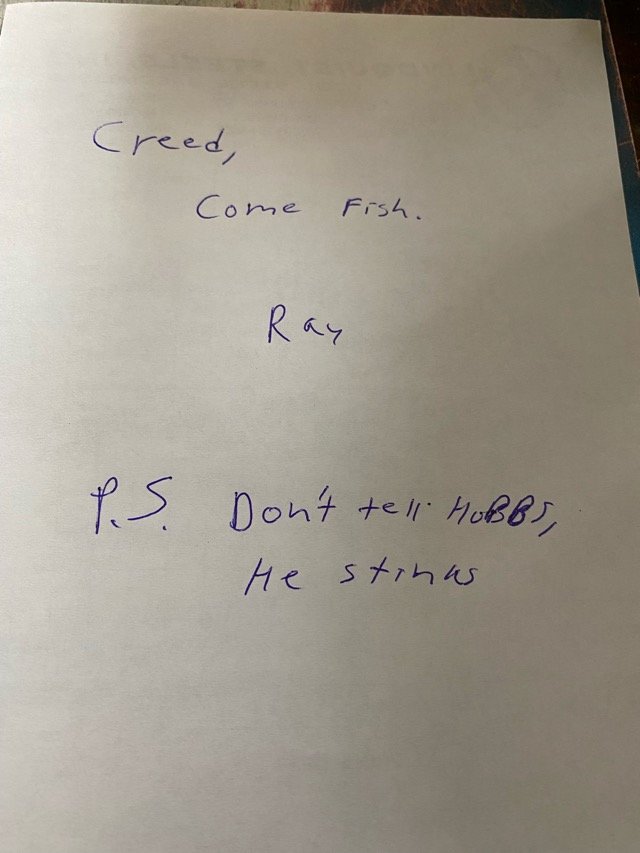 Creed,
Come Fish.
Ray
P.S. Don't tell HoBBS,
He stinks